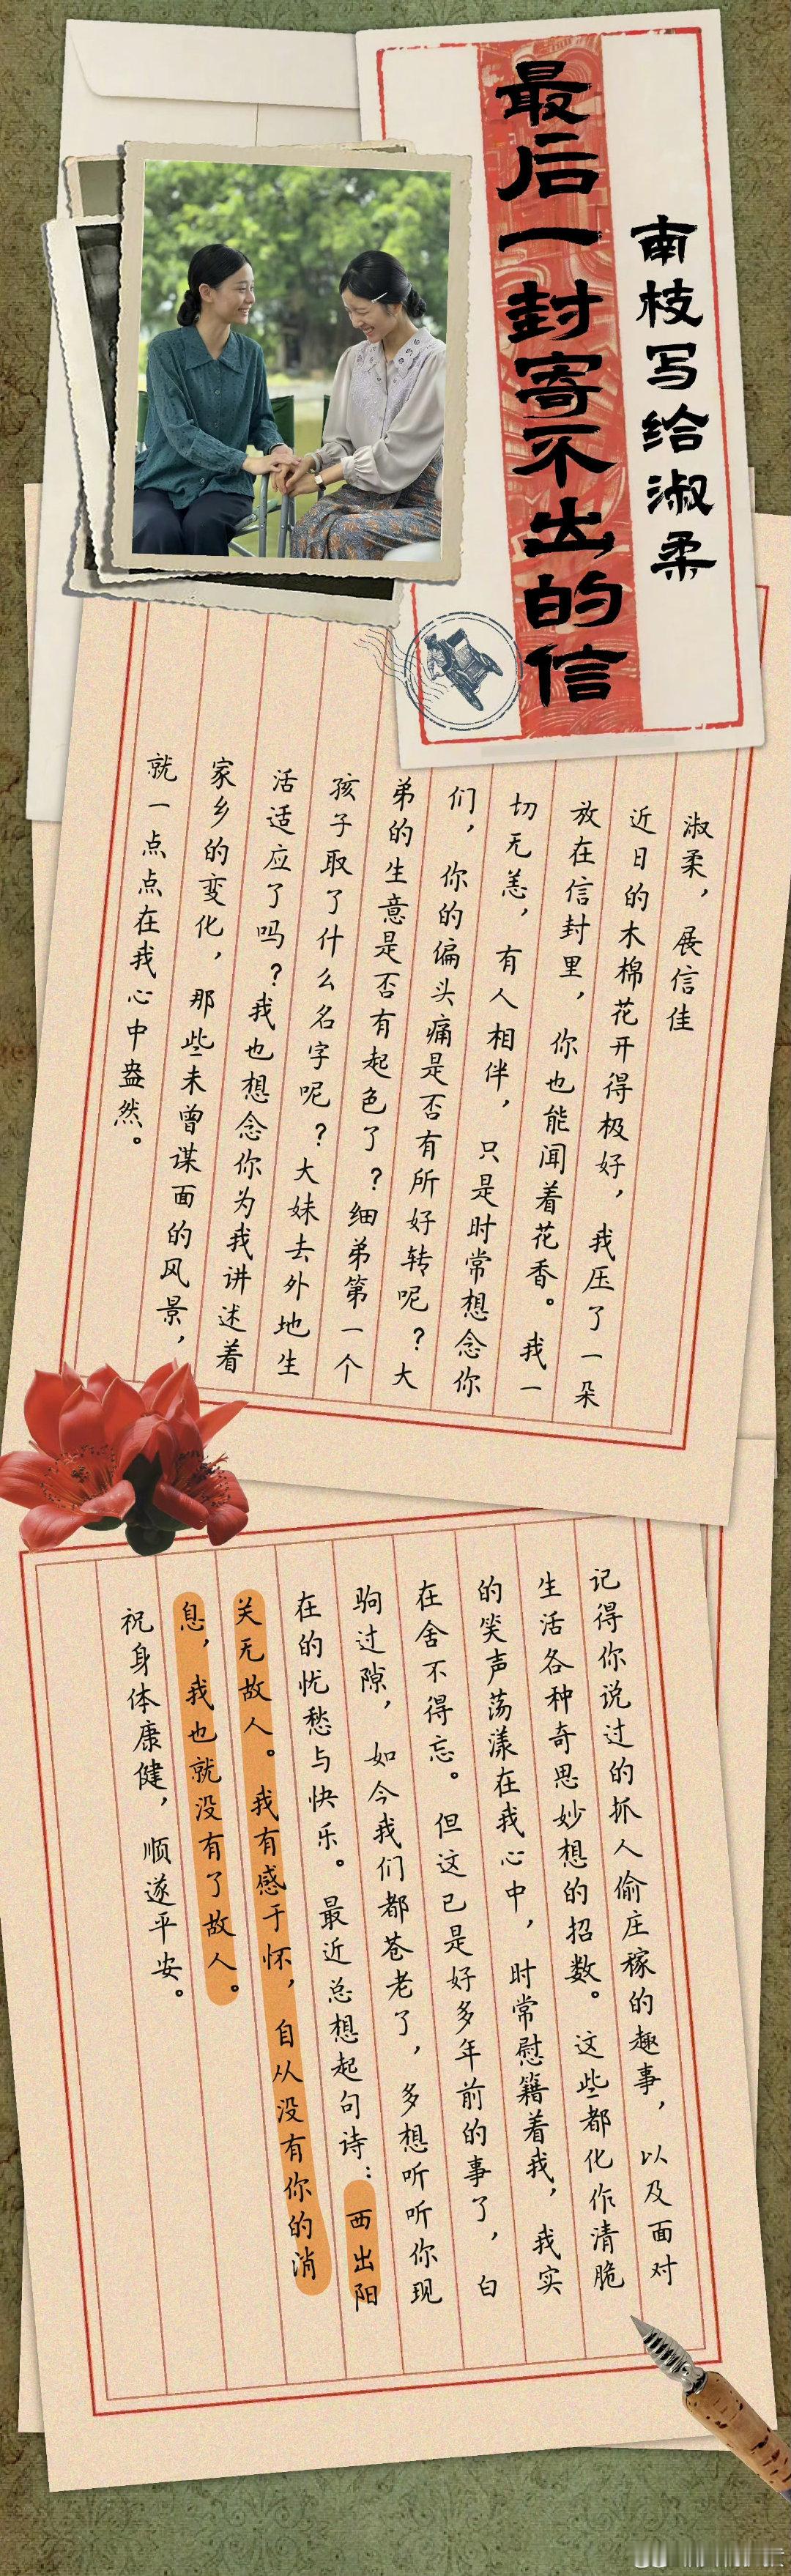 南枝写给淑柔
最后一封寄不出的信
淑柔，展信佳
近日的木棉花开得极好，我压了一朵
放在信封里，你也能闻着花香。我一
切无恙，有人相伴，只是时常想念你
们，你的偏头痛是否有所好转呢？大
弟的生意是否有起色了？细弟第一个
孩子取了什么名字呢？大妹去外地生
活适应了吗？我也想念你为我讲述着
家乡的变化，那些未曾谋面的风景，
就一点点在我心中盎然。
记得你说过的抓人偷庄稼的趣事，以及面对
生活各种奇思妙想的招数。这些都化作清脆
的笑声荡漾在我心中，时常慰籍着我，我实
在舍不得忘。但这已是好多年前的事了，白
驹过隙，如今我们都苍老了，多想听听你现
在的忧愁与快乐。最近总想起句诗：西出阳
关无故人。我有感于怀，自从没有你的消
息，我也就没有了故人。
祝身体康健，顺遂平安。